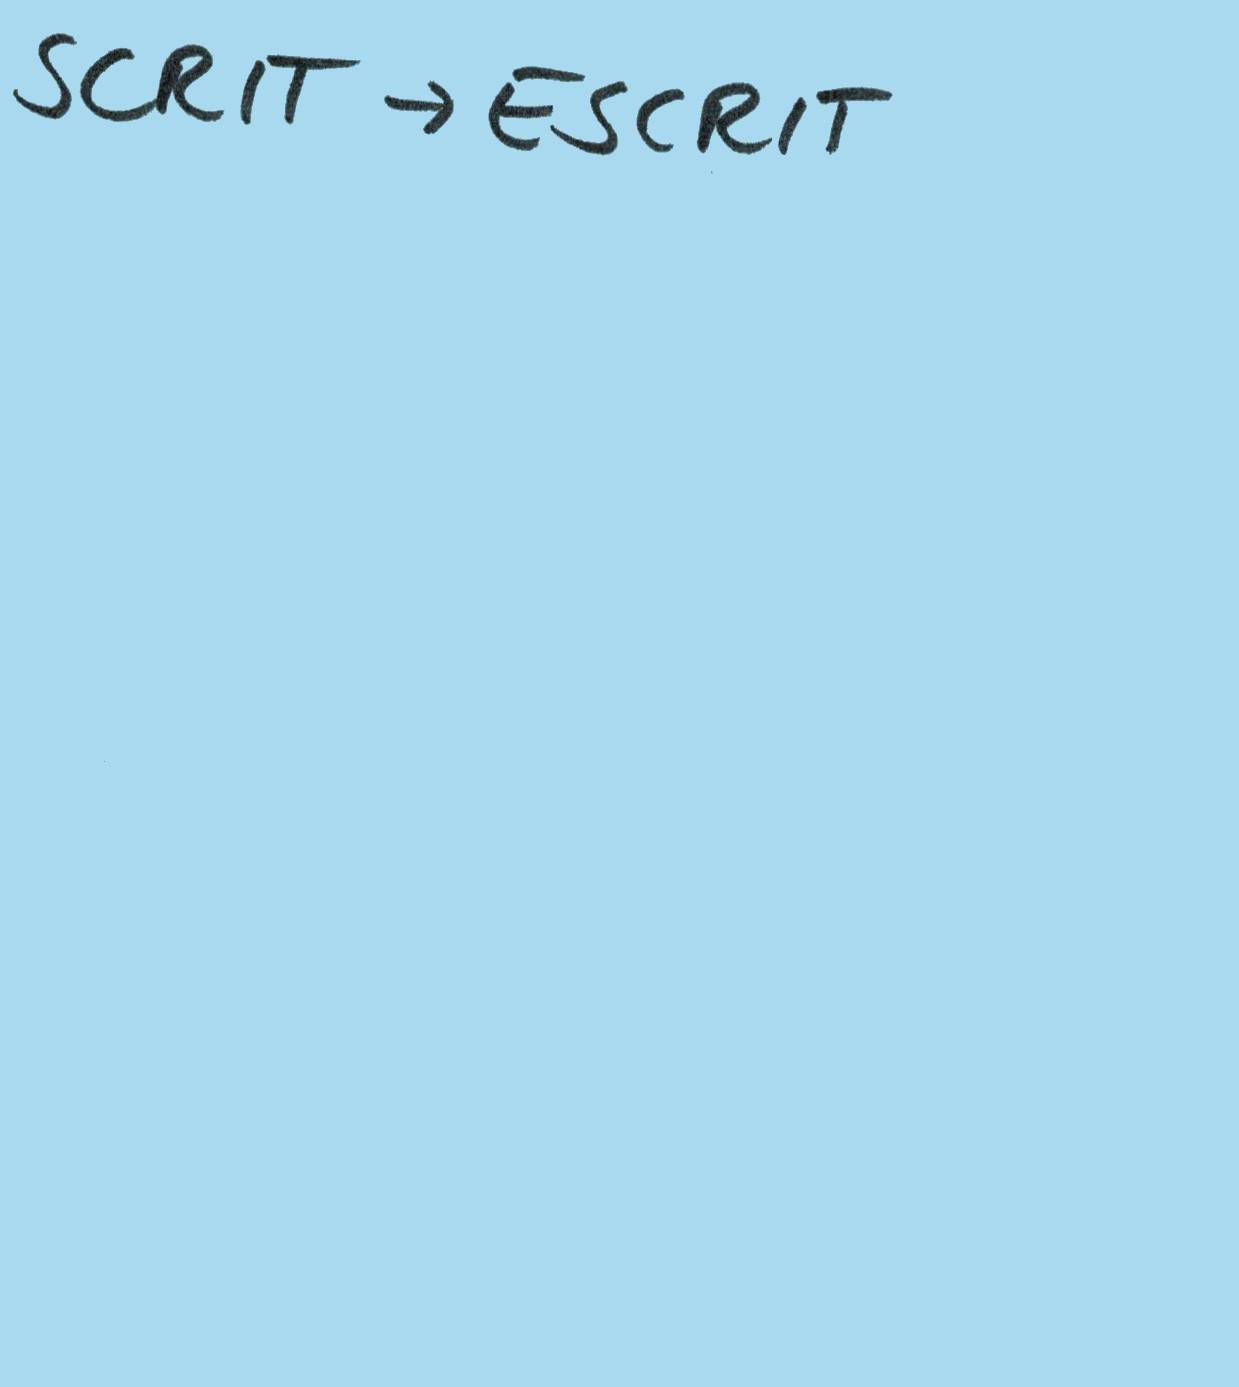 SCRIT → ESCRIT